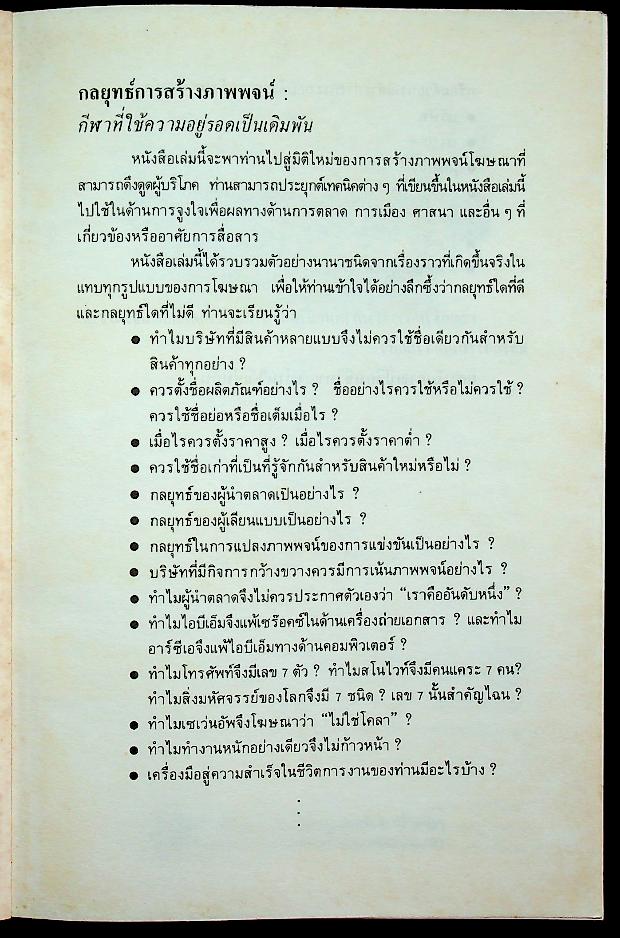 กลยุทธ์การสร้างภาพพจน์ :
กีฬาที่ใช้ความอยู่รอดเป็นเดิมพัน
หนังสือเล่มนี้จะพาท่านไปสู่มิติใหม่ของการสร้างภาพพจน์โฆษณาที่
สามารถดึงดูดผู้บริโภค ท่านสามารถประยุกต์เทคนิคต่าง ๆ ที่เขียนขึ้นในหนังสือเล่มนี้
ไปใช้ในด้านการจูงใจเพื่อผลทางด้านการตลาด การเมือง ศาสนา และอื่น ๆ ที่
เกี่ยวข้องหรืออาศัยการสื่อสาร
หนังสือเล่มนี้ได้รวบรวมตัวอย่างนานาชนิดจากเรื่องราวที่เกิดขึ้นจริงใน
แทบทุกรูปแบบของการโฆษณา เพื่อให้ท่านเข้าใจได้อย่างลึกซึ้งว่ากลยุทธ์ใดที่ดี
และกลยุทธ์ใดที่ไม่ดี ท่านจะเรียนรู้ว่า
● ทำไมบริษัทที่มีสินค้าหลายแบบจึงไม่ควรใช้ชื่อเดียวกันสำหรับ
สินค้าทุกอย่าง ?
● ควรตั้งชื่อผลิตภัณฑ์อย่างไร ? ชื่ออย่างไรควรใช้หรือไม่ควรใช้ ?
ควรใช้ชื่อย่อหรือชื่อเต็มเมื่อไร ?
● เมื่อไรควรตั้งราคาสูง ? เมื่อไรควรตั้งราคาต่ำ ?
● ควรใช้ชื่อเก่าที่เป็นที่รู้จักกันสำหรับสินค้าใหม่หรือไม่ ?
● กลยุทธ์ของผู้นำตลาดเป็นอย่างไร ?
● กลยุทธ์ของผู้เลียนแบบเป็นอย่างไร ?
● กลยุทธ์ในการแปลงภาพพจน์ของการแข่งขันเป็นอย่างไร ?
● บริษัทที่มีกิจการกว้างขวางควรมีการเน้นภาพพจน์อย่างไร ?
● ทำไมผู้นำตลาดจึงไม่ควรประกาศตัวเองว่า “เราคืออันดับหนึ่ง” ?
● ทำไมไอบีเอ็มจึงแพ้เซร๊อคซ์ในด้านเครื่องถ่ายเอกสาร ? และทำไม
อาร์ซีเอจึงแพ้ไอบีเอ็มทางด้านคอมพิวเตอร์ ?
● ทำไมโทรศัพท์จึงมีเลข 7 ตัว ? ทำไมสโนไวท์จึงมีคนแคระ 7 คน?
ทำไมสิ่งมหัศจรรย์ของโลกจึงมี 7 ชนิด ? เลข 7 นั้นสำคัญไฉน ?
● ทำไมเซเว่นอัพจึงโฆษณาว่า “ไม่ใช่โคลา” ?
● ทำไมทำงานหนักอย่างเดียวจึงไม่ก้าวหน้า ?
● เครื่องมือสู่ความสำเร็จในชีวิตการงานของท่านมีอะไรบ้าง ?